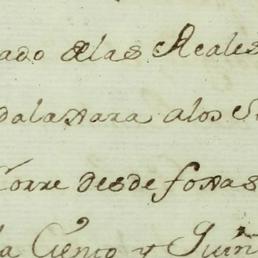 ado de las Reales
dalaxara a los S
Corre desde foxas
la Ciento y Quin